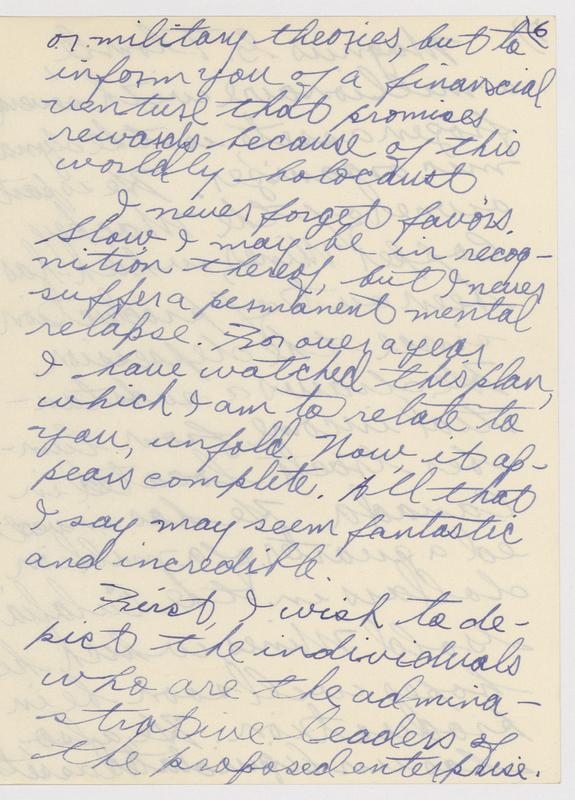 6
or military theories, but to
inform you of a financial
venture that promises
rewards because of this
worldly holocaust
I never forget favors.
Slow I may be in recog-
nition thereof, but I never
suffer a permanent mental
relapse. For over a year
I have watched this plan,
which I am to relate to
you, unfold. Now, it ap-
pears complete. All that
I say may seem fantastic
and incredible.
First, I wish to de-
pict the individuals
who are the admina-
strative leaders of
the proposed enterprise.